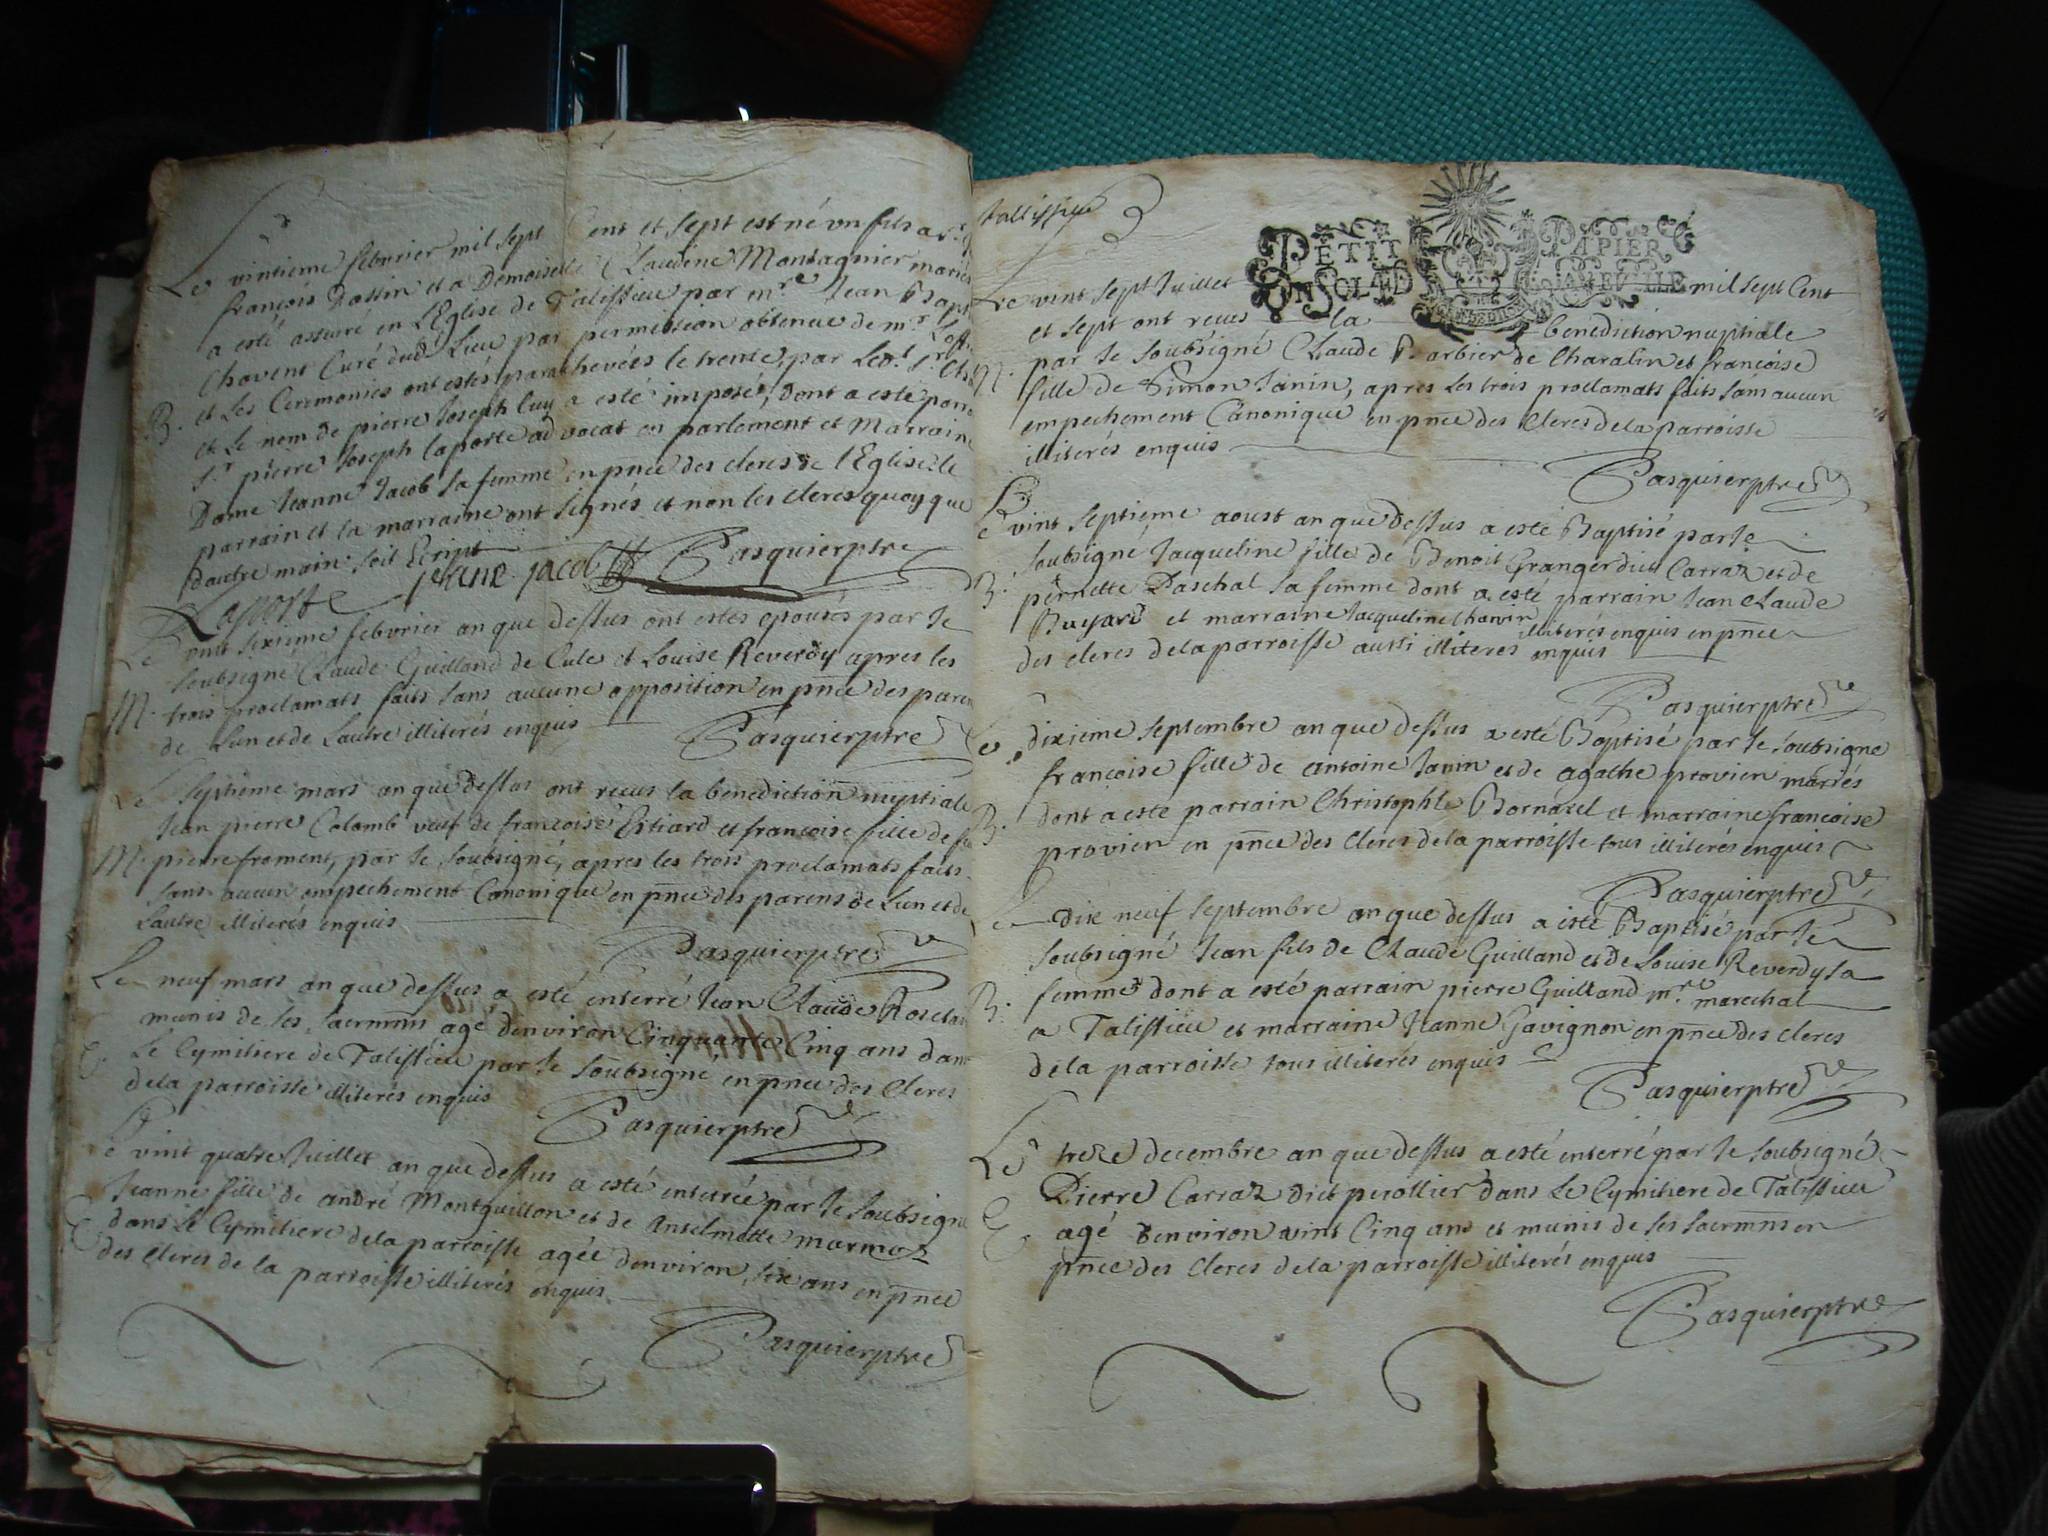 Le vintieme febvrier mil sept Cent et sept est né un fils a
françois Dassin et a Demoiselle Claudine Montagnier mariés
a esté assuré en L'Eglise de Talissieu par mre Jean Bapt
Chovent Curé dud. Lieu par permission obtenue de mr
et Les Ceremonies ont estés parachevées le trente, par Led. Sr.
B. et Le nom de pierre Joseph luy a esté imposé, dont a esté parr
Sr pierre Joseph laporte advocat en parlement et Marraine
Dame Jeanne Jacob sa femme en pnce des clercs de l'Eglise le
parrain et la marraine ont signés et non les clercs quoy que
d'autre main soit Ecript
Laporte jeanne jacob Pasquier ptre
Le vint sixieme febvrier an que dessus ont estes epousés par Je
soubsigné Claude Guilland de Cule et Louise Reverdy apres les
M. trois proclamats faits sans aucune opposition en pnce des paren
de Lun et de Lautre illiterés enquis
Pasquier ptre
Le septieme mars an que dessus ont recus la benediction nuptiale
Jean pierre Colomb veuf de francoise Estiard et francoise fille de
M. pierre froment, par Je soubsigné, apres les trois proclamats faits
sans aucun empechement Canonique en pnce des parens de Lun et de
Lautre illiterés enquis
Pasquier ptre
Le neuf mars an que dessus a esté enterré Jean Claude
munis de ses sacrmns agé d'environ Cinquante Cinq ans dans
E. Le Cymitiere de Talissieu par Je soubsigné en pnce des Clercs
de la parroisse illiterés enquis
Pasquier ptre
Le vint quatre Juillet an que dessus a esté enterrée par Je soubsigné
Jeanne fille de andré Montguillon et de Anselmette marmoz
E. dans Le Cymitiere de la parroisse agée d'environ six ans en pnce
des clercs de la parroisse illiterés enquis
Pasquier ptre
Tallissieu
PETIT PAPIER
ONSOLED LA FEUILLE
Le vint sept Juillet mil sept Cent
et sept ont recus la benediction nuptiale
par Je soubsigné Claude Barbier de Charalin et françoise
M. fille de Simon Janin, apres Les trois proclamats faits sans aucun
empechement Canonique en pnce des Clercs de la parroisse
illiterés enquis
Pasquier ptre
Le vint septieme aoust an que dessus a esté Baptisé par Je
soubsigné Jacqueline fille de Benoit Granger dict Carraz et de
B. pernette Paschal sa femme dont a esté parrain Jean Claude
Buyard et marraine Jacqueline Charvin illiterés enquis en pnce
des clercs de la parroisse aussi illiterés enquis
Pasquier ptre
Le dixieme septembre an que dessus a esté Baptisé par Je soubsigné
françoise fille de antoine Janin et de agathe provien mariés
B. dont a esté parrain Christophle Bornarel et marraine francoise
provien en pnce des Clercs de la parroisse tous illiterés enquis
Pasquier ptre
Le dix neuf septembre an que dessus a esté Baptisé par Je
soubsigné Jean fils de Claude Guilland et de Louise Reverdy sa
B. femme dont a esté parrain pierre Guilland mre marechal
a Talissieu et marraine Jeanne Gavignon en pnce des clercs
de la parroisse tous illiterés enquis
Pasquier ptre
Le treze decembre an que dessus a esté enterré par Je soubsigné
Pierre Carraz dict perollier dans Le Cymitiere de Talissieu
E. agé denviron vint Cinq ans et munis de ses sacrmns en
pnce des Clercs de la parroisse illiterés enquis
Pasquier ptre